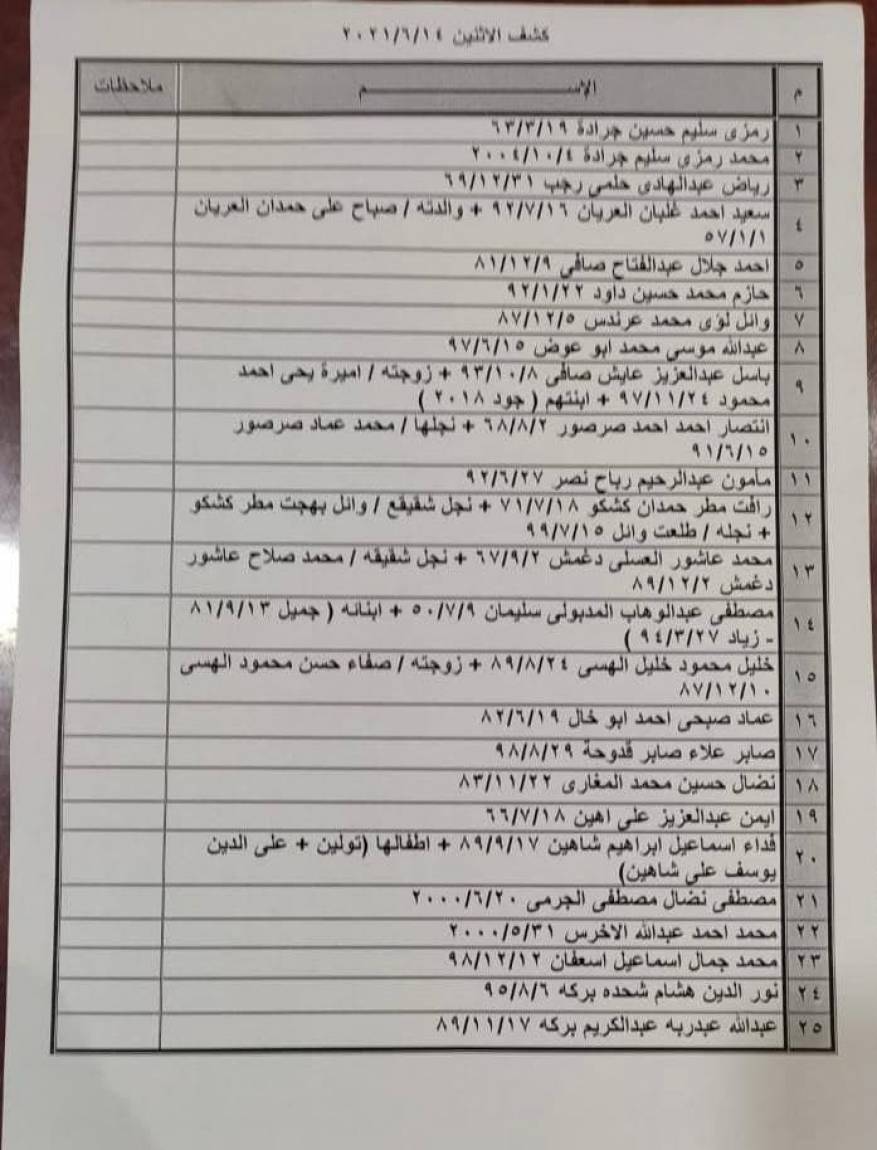 كشف الاثنين ٢٠٢١/٦/١٤
م الإســـم ملاحظات
١ رمزى سليم حسين جرادة ٦٣/٣/١٩
٢ محمد رمزى سليم جرادة ٢٠٠٤/١٠/٤
٣ رياض عبدالهادى حلمى رجب ٦٩/١٢/٣١
٤ سعيد احمد غلبان العريان ٩٢/٧/١٦ + والدته / صباح على حمدان العريان
٥٧/١/١
٥ احمد جلال عبدالفتاح صافى ٨١/١٢/٩
٦ حازم محمد حسين داود ٩٢/١/٢٢
٧ وائل لؤى محمد عرندس ٨٧/١٢/٥
٨ عبدالله موسي محمد ابو عوض ٩٧/٦/١٥
٩ باسل عبدالعزيز عايش صافى ٩٣/١٠/٨ + زوجته / اميرة يحى احمد
محمود ٩٧/١١/٢٤ + ابنتهم ( جود ٢٠١٨ )
١٠ انتصار احمد احمد صرصور ٦٨/٨/٢ + نجلها / محمد عماد صرصور
٩١/٦/١٥
١١ مأمون عبدالرحيم رباح نصر ٩٢/٦/٢٧
١٢ رافت مطر حمدان كشكو ٧١/٧/١٨ + نجل شقيقع / وائل بهجت مطر كشكو
+ نجله / طلعت وائل ٩٩/٧/١٥
١٣ محمد عاشور العسلى دغمش ٦٧/٩/٢ + نجل شقيقه / محمد صلاح عاشور
دغمش ٨٩/١٢/٢
١٤ مصطفى عبدالوهاب المدبولى سليمان ٥٠/٧/٩ + ابنائه ( جميل ٨١/٩/١٣
- زياد ٩٤/٣/٢٧ )
١٥ خليل محمود خليل الهسى ٨٩/٨/٢٤ + زوجته / صفاء حسن محمود الهسى
٨٧/١٢/١٠
١٦ عماد صبحى احمد ابو خال ٨٢/٦/١٩
١٧ صابر علاء صابر قدوحة ٩٨/٨/٢٩
١٨ نضال حسين محمد المغارى ٨٣/١١/٢٢
١٩ ايمن عبدالعزيز على اهين ٦٦/٧/١٨
٢٠ فداء اسماعيل ابراهيم شاهين ٨٩/٩/١٧ + اطفالها (تولين + على الدين
يوسف علي شاهين)
٢١ مصطفى نضال مصطفى الجرمى ٢٠٠٠/٦/٢٠
٢٢ محمد احمد عبدالله الاخرس ٢٠٠٠/٥/٣١
٢٣ محمد جمال اسماعيل اسعفان ٩٨/١٢/١٢
٢٤ نور الدين هشام شحده بركه ٩٥/٨/٦
٢٥ عبدالله عبدربه عبدالكريم بركه ٨٩/١١/١٧